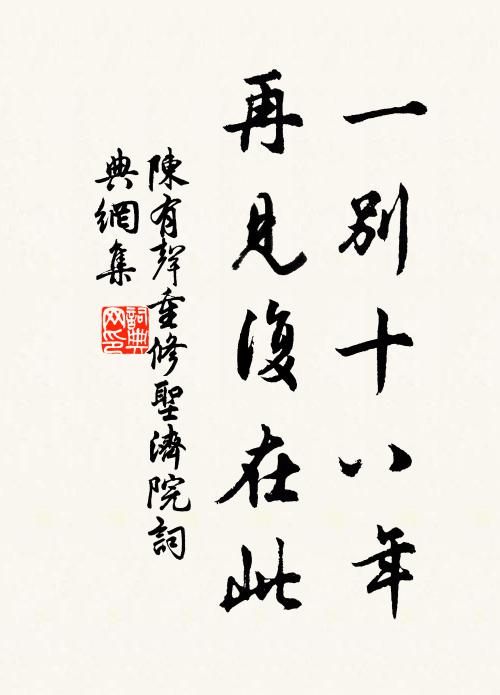 一别十八年
再見復在此
陳有聲重修聖濟院詞
典網集
詞典
网印